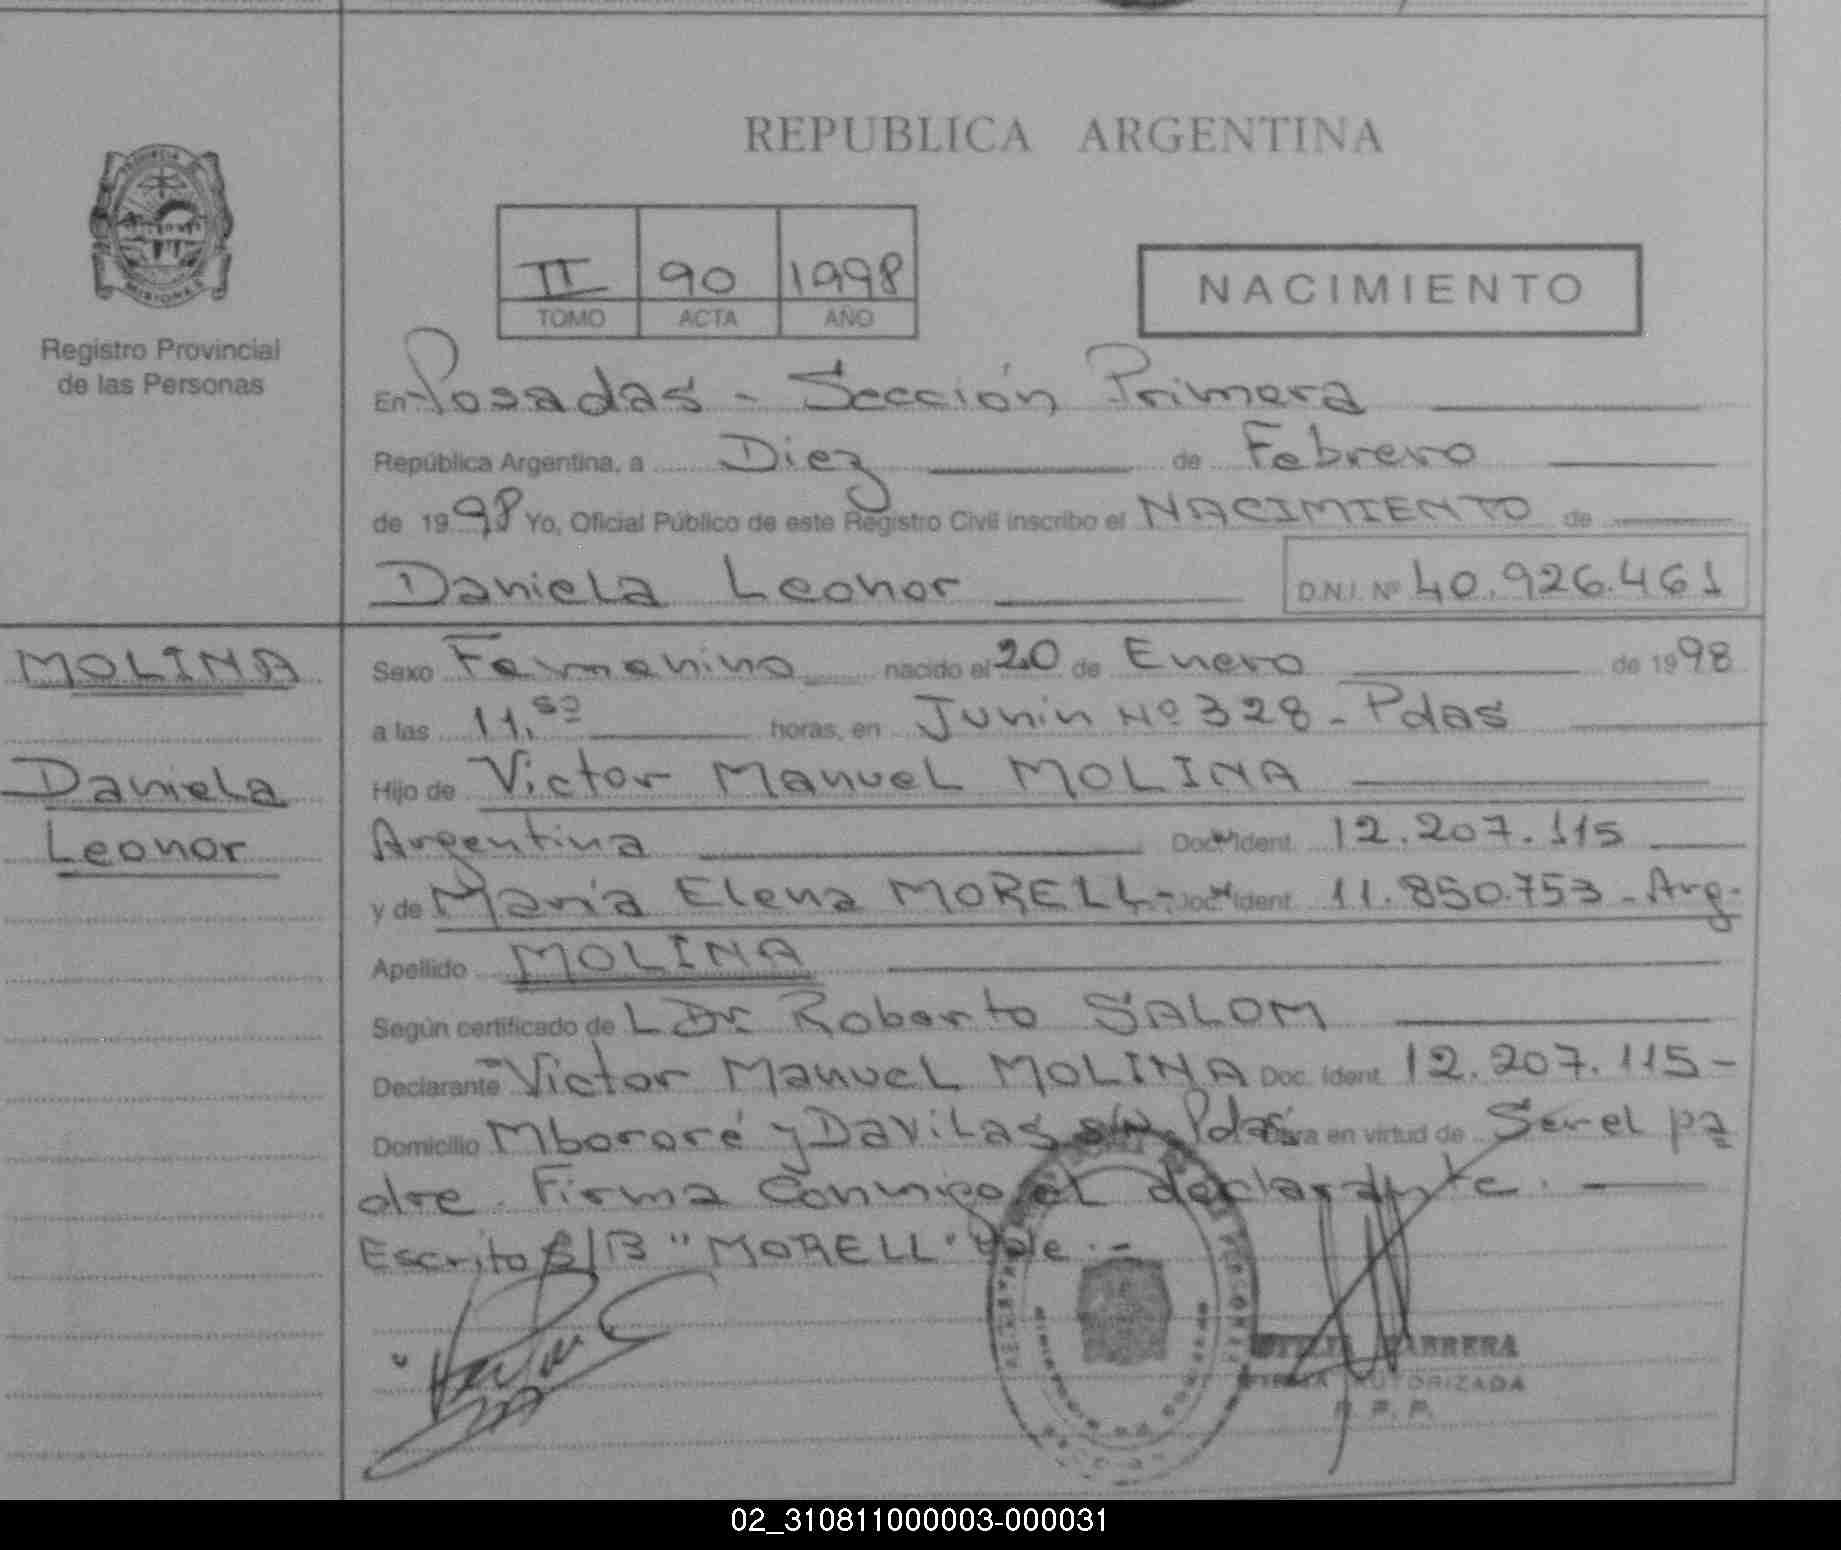 REPUBLICA ARGENTINA
PROVINCIA
MISIONES
Registro Provincial
de las Personas
II 90 1998
TOMO ACTA AÑO
NACIMIENTO
En Posadas - Sección Primera
República Argentina, a Diez de Febrero
de 1998 Yo, Oficial Público de este Registro Civil inscribo el NACIMIENTO de
Daniela Leonor D.N.I. Nº 40.926.461
MOLINA
Daniela
Leonor
Sexo Femenino nacido el 20 de Enero de 1998
a las 11,50 horas, en Junin Nº 328 - Pdas
Hijo de Victor Manuel MOLINA
Argentina Doc. Ident. 12.207.115
y de Maria Elena MORELL - Doc. Ident. 11.850.753 - Arg.
Apellido MOLINA
Según certificado de L Dr. Roberto SALOM
Declarante Victor Manuel MOLINA Doc. Ident. 12.207.115 -
Domicilio Mbororé y Davilas s/n Pdas en virtud de Ser el pa
dre. Firma Conmigo el declarante.
Escrito S/B "MORELL" Vale.-
CABRERA
FIRMA AUTORIZADA
R. P. P.
02_310811000003-000031